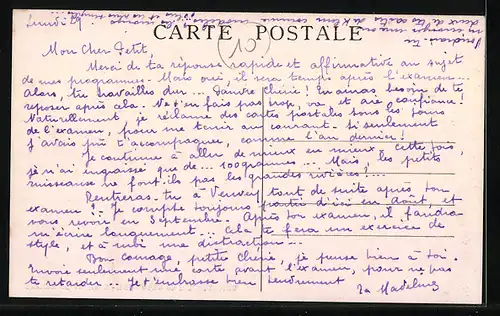 Lundi 29.
voudrais-tu
m'envoyer une ou
deux de tes
CARTE POSTALE
10
Mon Cher Petit,
Merci de ta réponse rapide et affirmative au sujet
de mes programmes. Mais oui, il sera temps après l'examen...
Alors, tu travailles dur... Pauvre chérie! Tu auras besoin de te
reposer après cela. Ne t'en fais pas trop, va et aie confiance!
Naturellement, je réclame des cartes postales tous les jours
de l'examen, pour me tenir au courant. Si seulement
j'avais pu t'accompagner, comme l'an dernier!
Je continue à aller de mieux en mieux, cette fois
je n'ai engraissé que de... 100 grammes... Mais, les petits
ruisseaux ne font-ils pas les grandes rivières!...
Rentreras-tu à tout de suite après ton
examen? Je compte toujours partir d'ici en Août, et
vous revoir en Septembre. Après ton examen, il faudra
m'écrire longuement... Cela te fera un exercice de
style, et à moi une distraction...
Bon courage, petite chérie, je pense bien à toi.
Envoie seulement une carte avant l'examen, pour ne pas
te retarder... Je t'embrasse bien tendrement
ta Madeleine